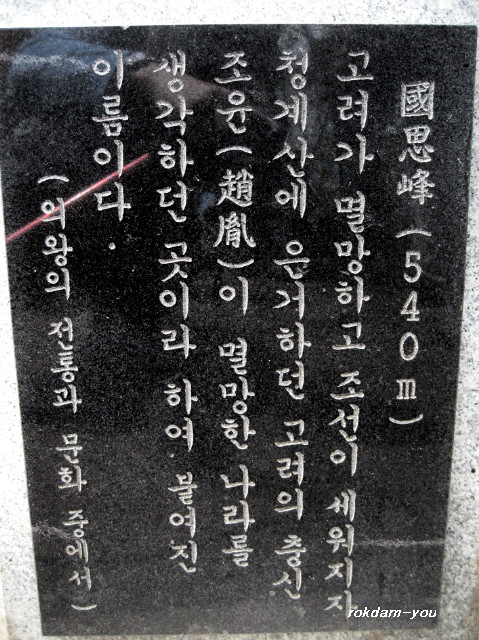 國思峰(540m)
고려가 멸망하고 조선이 세워지자
청계산에 은거하던 고려의 충신
조윤(趙胤)이 멸망한 나라를
생각하던 곳이라 하여 붙여진
이름이다.
(의왕의 전통과 문화 중에서)
rokdam-you